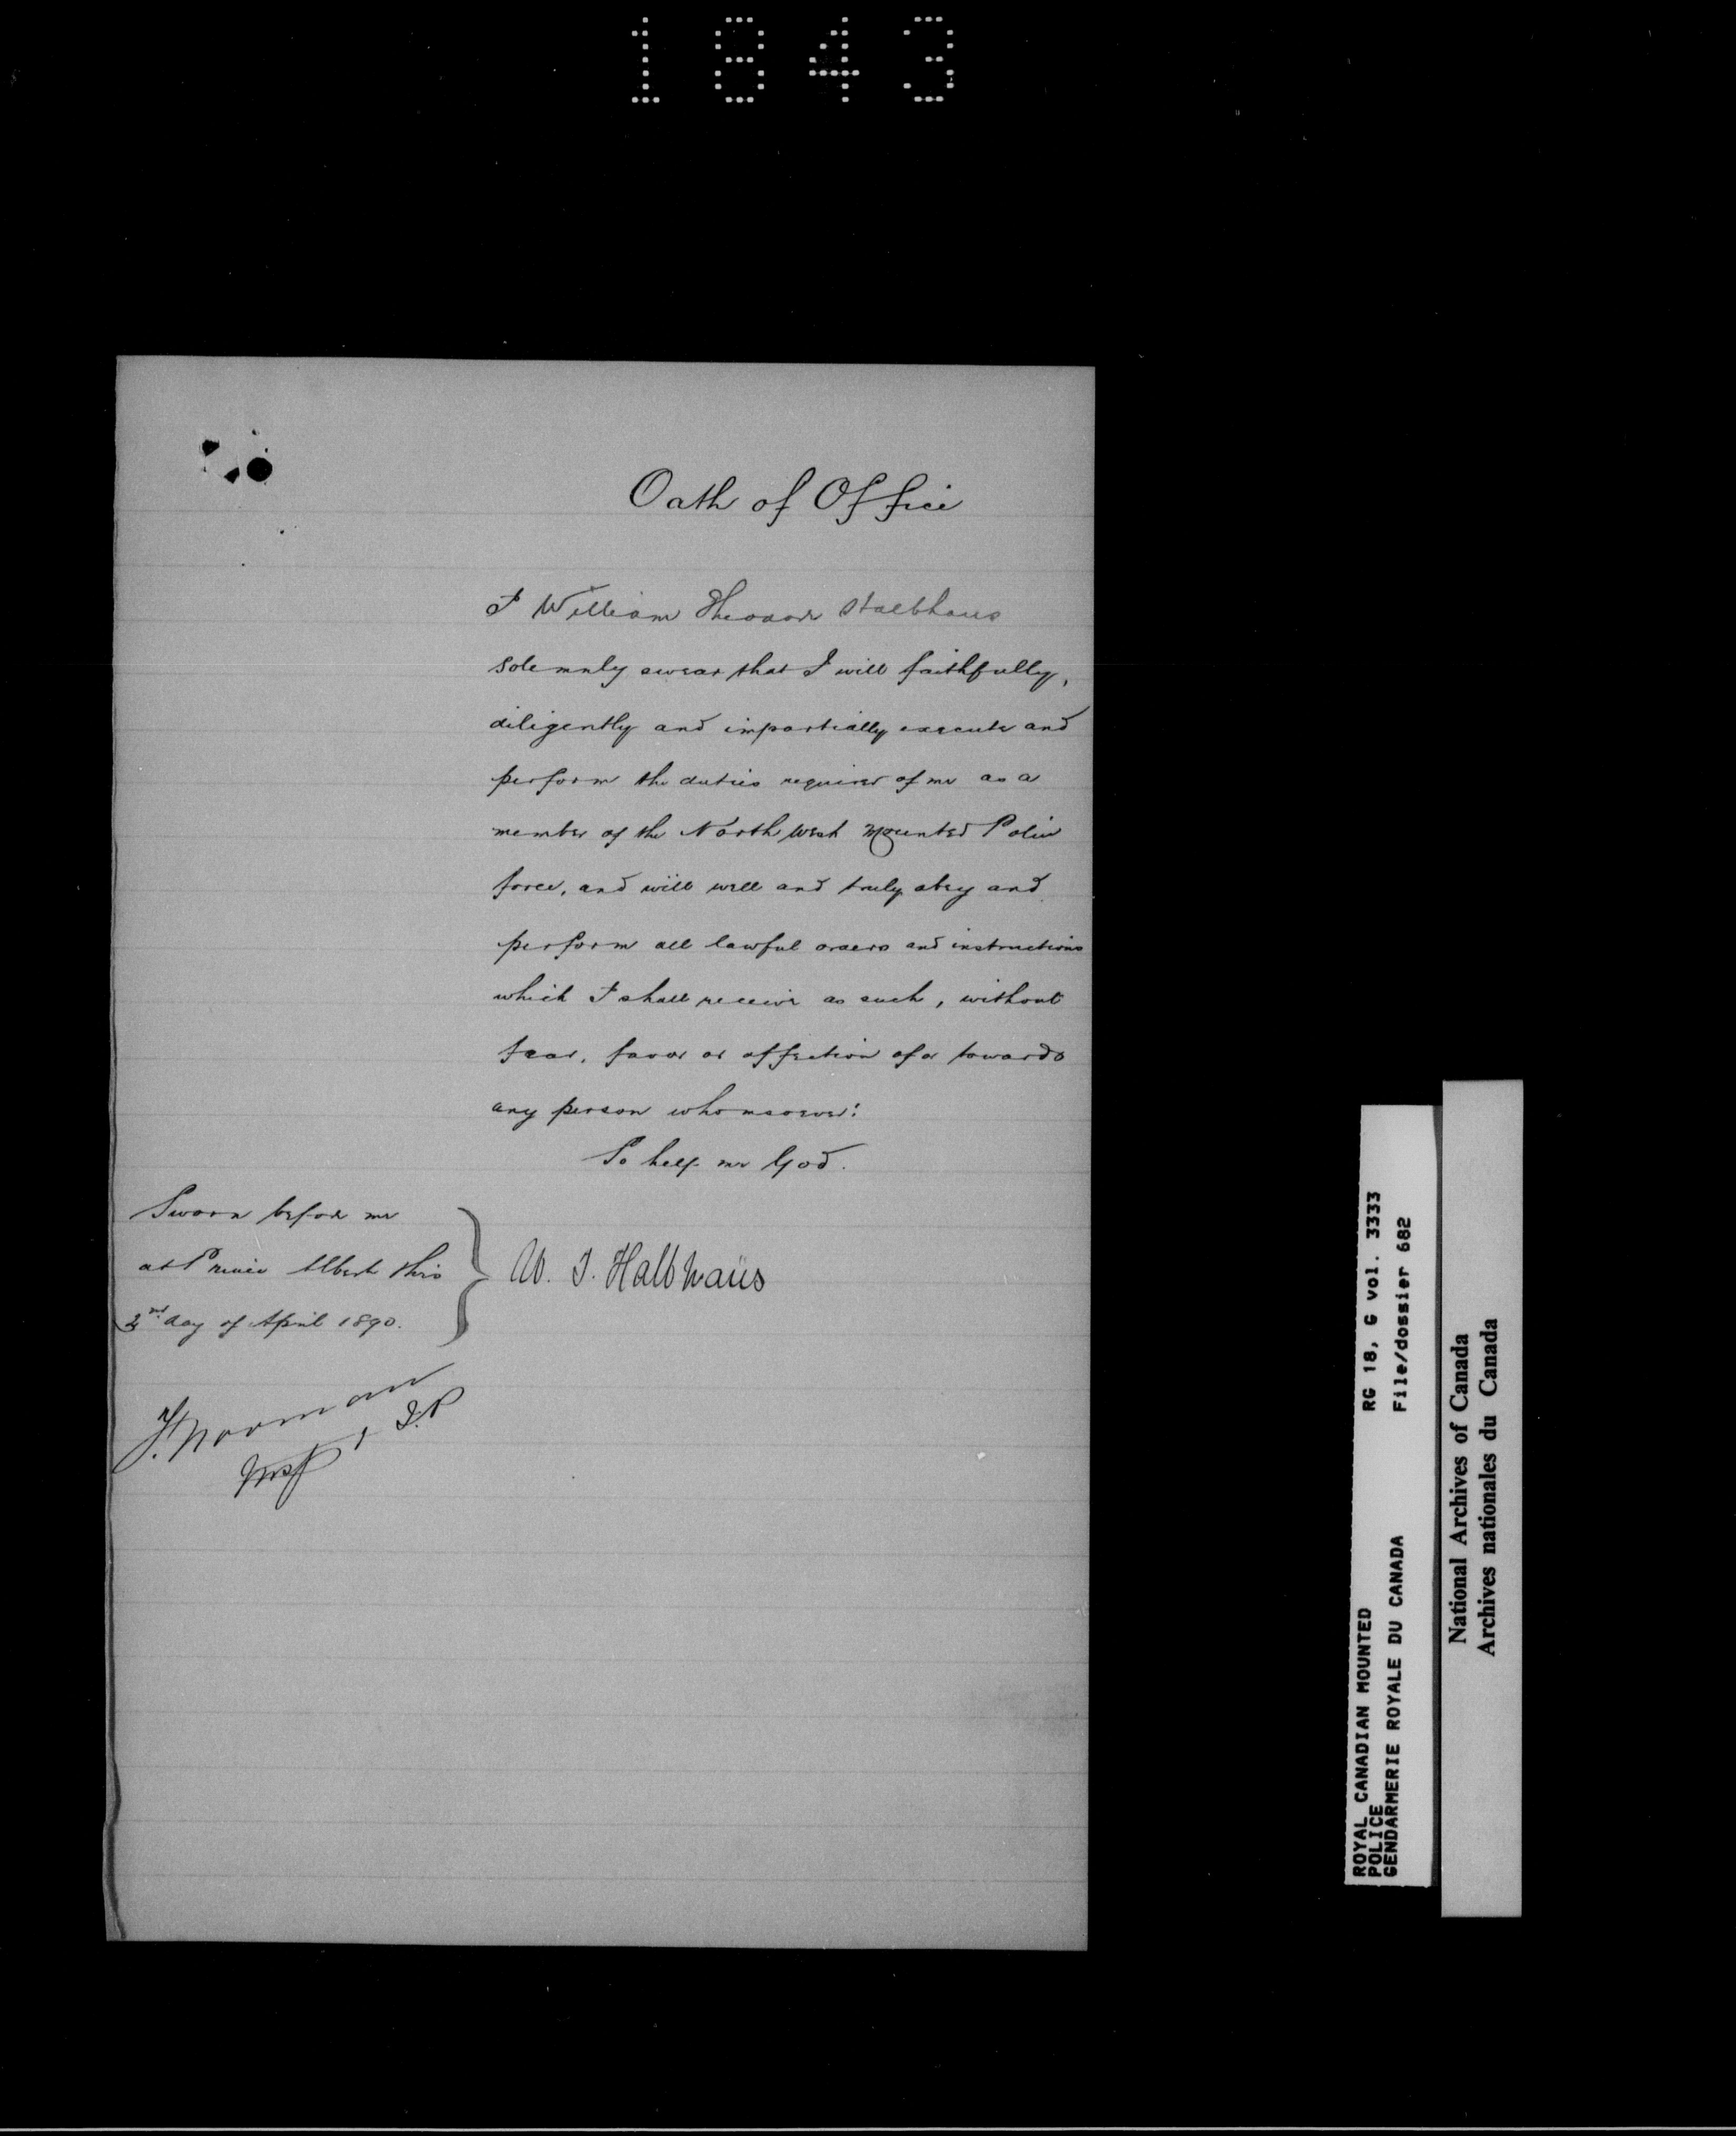 1843
Oath of Office
I William Theodore Halbhaus
solemnly swear that I will faithfully,
diligently and impartially execute and
perform the duties required of me as a
member of the North West Mounted Police
force, and will well and truly obey and
perform all lawful orders and instructions
which I shall receive as such, without
fear, favor or affection of or towards
any person whomsoever:
So help me God.
Sworn before me
at Prince Albert this
2nd day of April 1890.
W. T. Halbhaüs
F. Norman
Insp, J.P
ROYAL CANADIAN MOUNTED
POLICE
GENDARMERIE ROYALE DU CANADA
RG 18, G vol. 3333
File/dossier 682
National Archives of Canada
Archives nationales du Canada